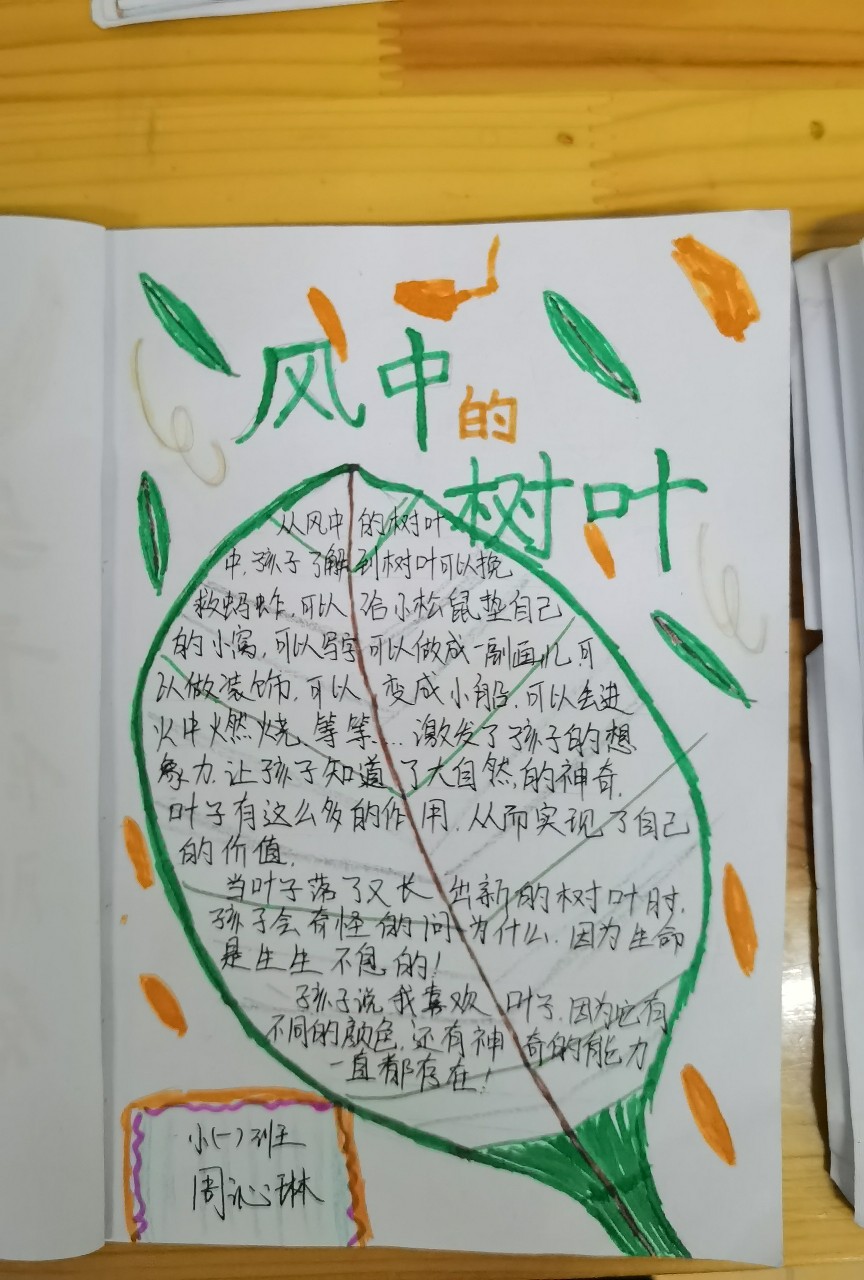 风中的
树叶
从风中的树叶
中,孩子了解到树叶可以挽
救蚂蚱,可以给小松鼠垫自己
的小窝,可以写字可以做成一副画儿,可
以做装饰,可以变成小船,可以去进
火中燃烧,等等....激发了孩子的想
象力,让孩子知道了大自然的神奇,
叶子有这么多的作用,从而实现了自己
的价值,
当叶子落了又长出新的树叶时,
孩子会奇怪的问为什么,因为生命
是生生不息的!
孩子说我喜欢叶子,因为它有
不同的颜色,还有神奇的能力
一直都存在!
小(一)班
周沁琳